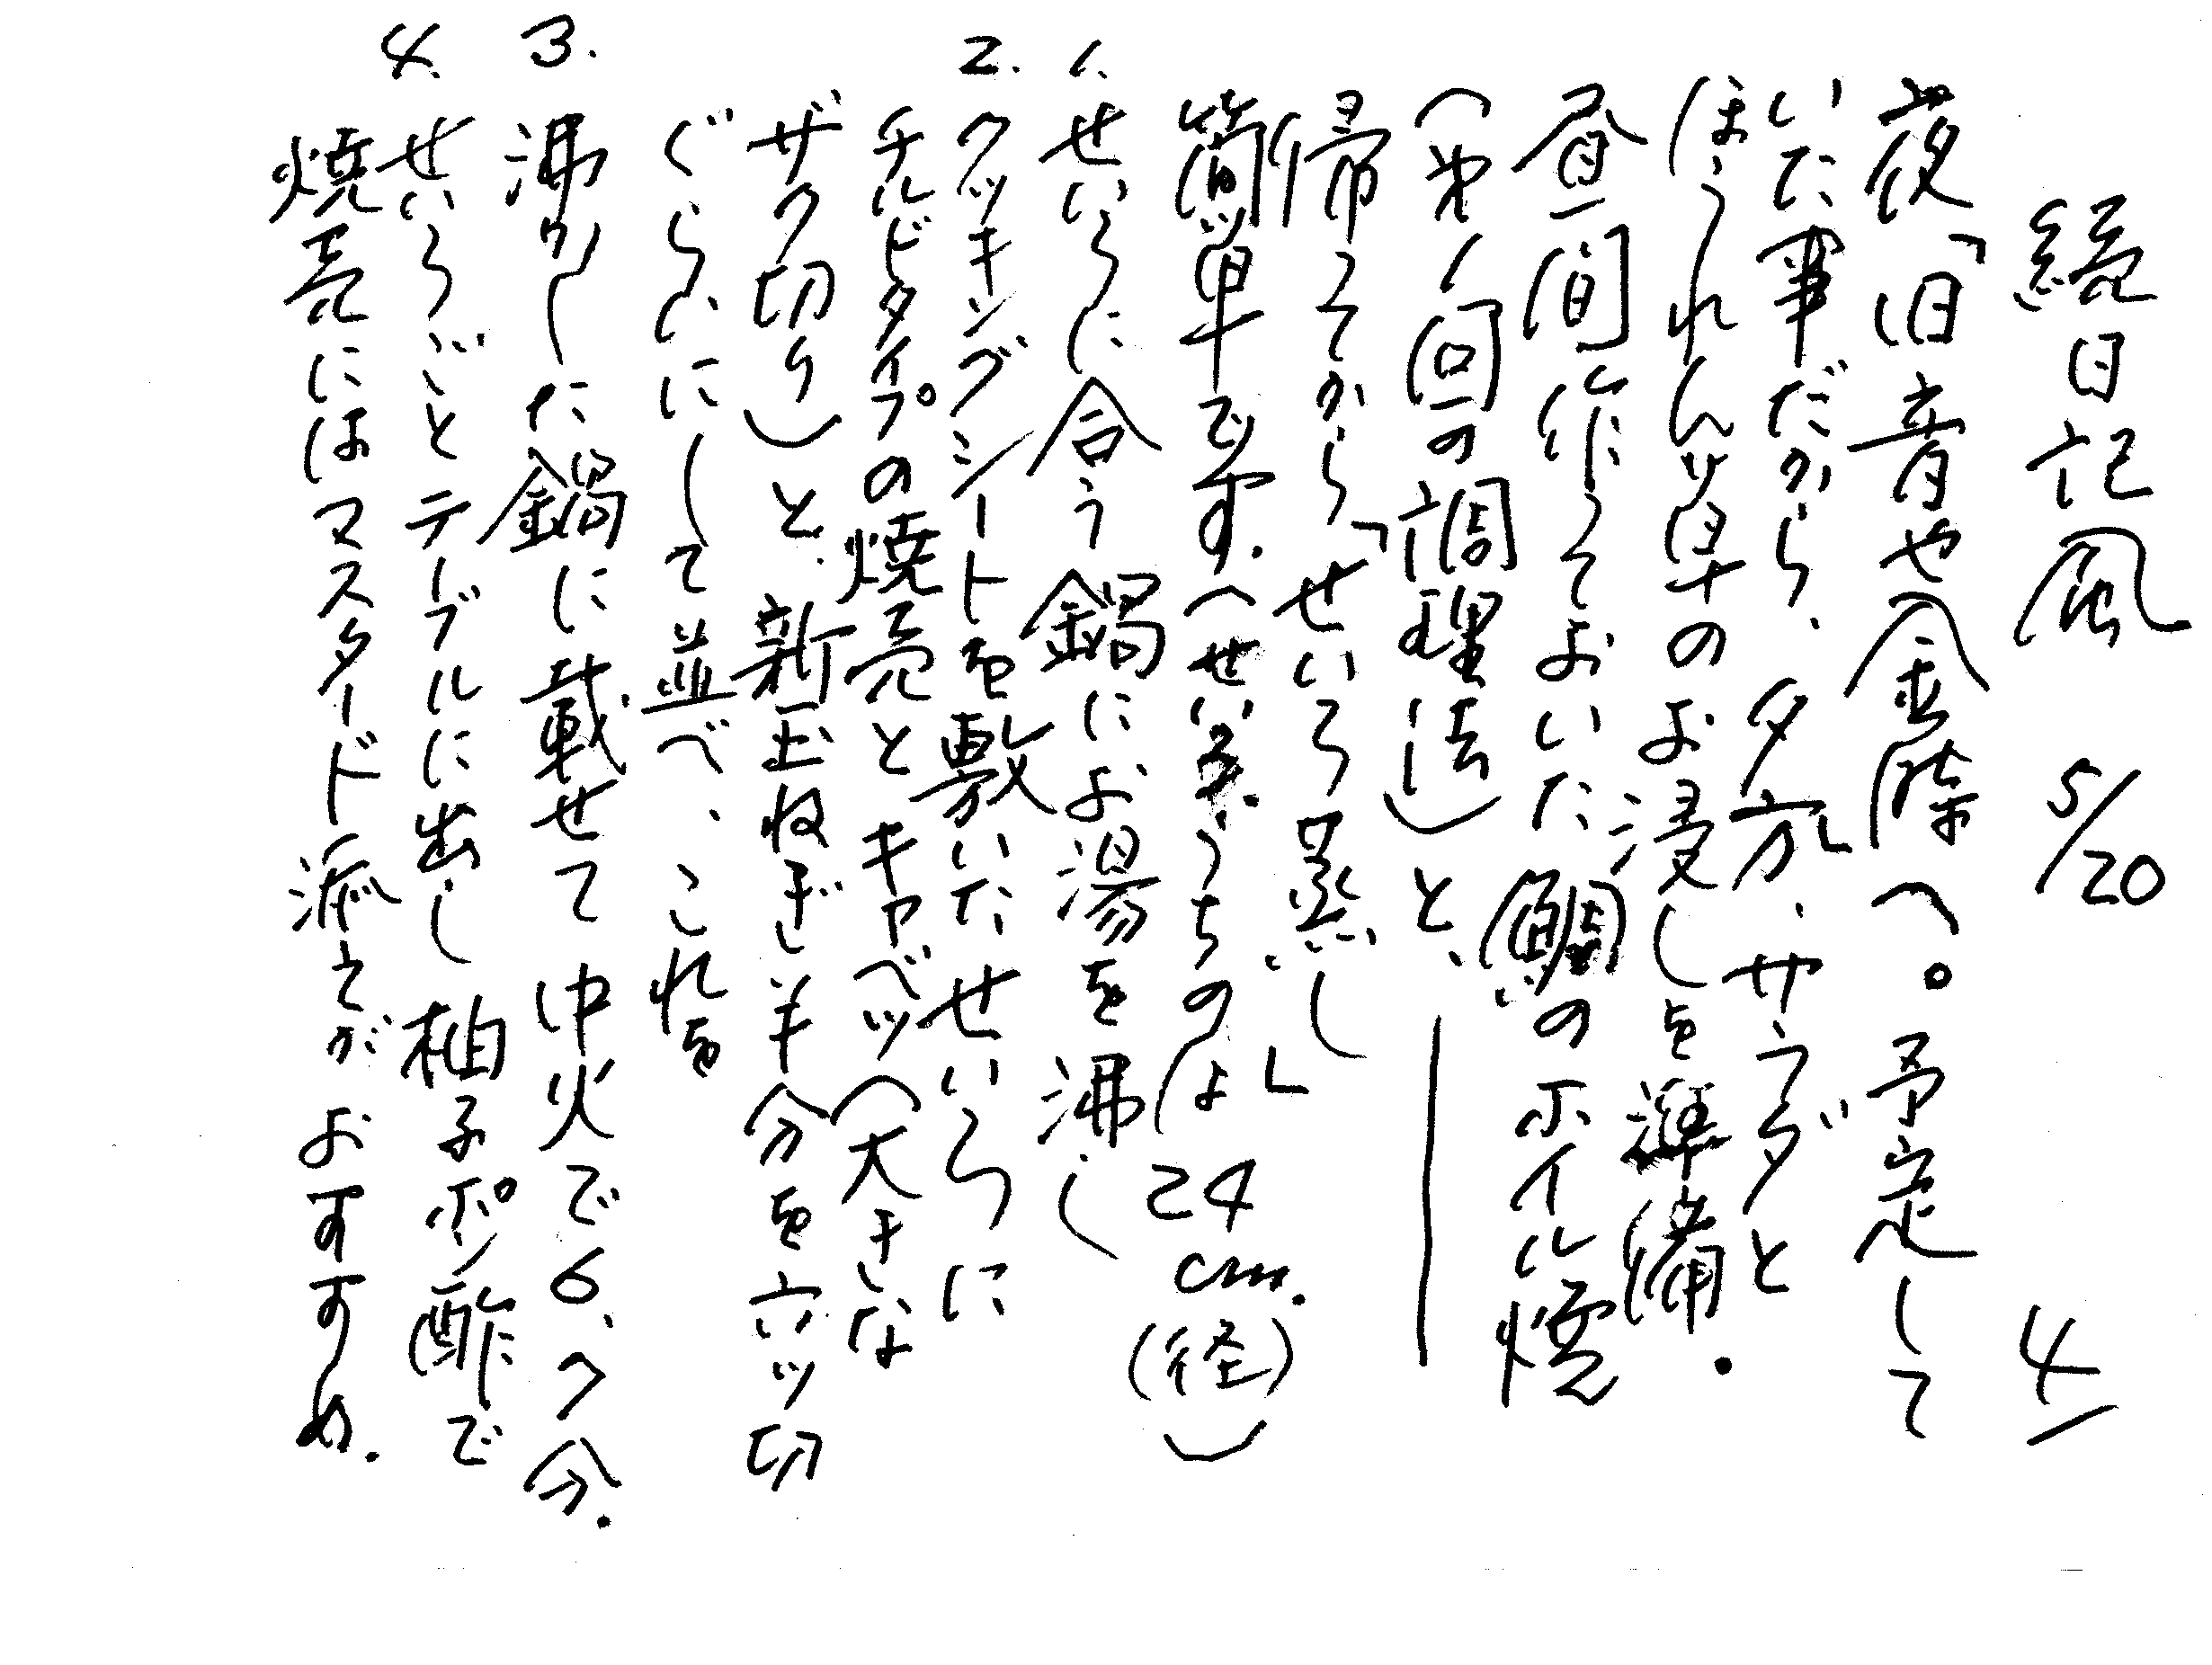 続日記風 5/20 4/
夜「旧音や金時へ。予定して
いた事だから、夕方、サラダと
ほうれん草のお浸しを準備.
昼間作っておいた鯛のホイル焼
(第1回の調理法)と、
帰ってから「せいろ蒸し」
簡単です.(せいろ.うちのは24cm.(径))
1. せいろに合う鍋にお湯を沸し
2. クッキングシートを敷いたせいろに
チルドタイプの焼売とキャベツ(大きな
ザク切り)と、新玉ねぎ半分を六ッ切
ぐらいにして並べ、これを
3. 沸かした鍋に載せて中火で6、7分.
4. せいろごとテーブルに出し柚子ポン酢で
焼売にはマスタード添えがおすすめ.